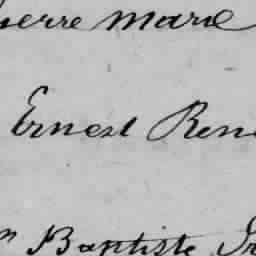 ierre Marie
Ernest Ren
n Baptiste Jr